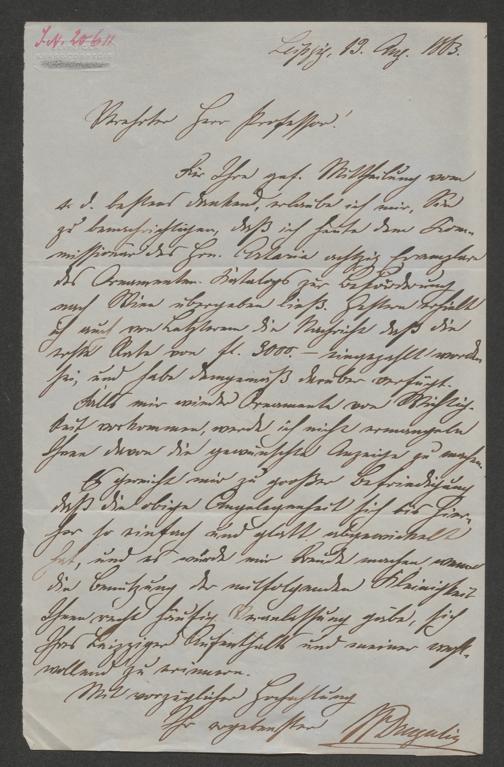 J.N. 20.611
Leipzig, 19. Aug. 1863.
Verehrter Herr Professor!
Für Ihre gef. Mittheilung vom
u. d. bestens dankend, erlaube ich mir, Sie
zu benachrichtigen, daß ich heute dem Kom-
missionär des Hrn. Artaria achtzig Exemplare
des Ornamenten-Katalogs zur Beförderung
nach Wien übergeben ließ. Gestern erhielt
ich auch von Letzterem die Nachricht daß die
erste Rate von fl. 3000.— eingezahlt worden
sei, und habe demgemäß darüber verfügt.
Falls mir wieder Ornamente von Wichtig-
keit vorkommen, werde ich nicht ermangeln
Ihnen davon die gewünschte Anzeige zu machen.
Es gereicht mir zu großer Befriedigung
daß die obige Angelegenheit sich bis hier-
her so einfach und glatt abgewickelt
hat, und es würde mir Freude machen, wenn
die Benutzung der mitfolgenden Kleinigkeit
Ihnen recht häufig Veranlassung gäbe, sich
Ihres Leipziger Aufenthalts und meiner wohl-
wollend zu erinnern.
Mit vorzüglicher Hochachtung
Ihr ergebenster WDrugulin